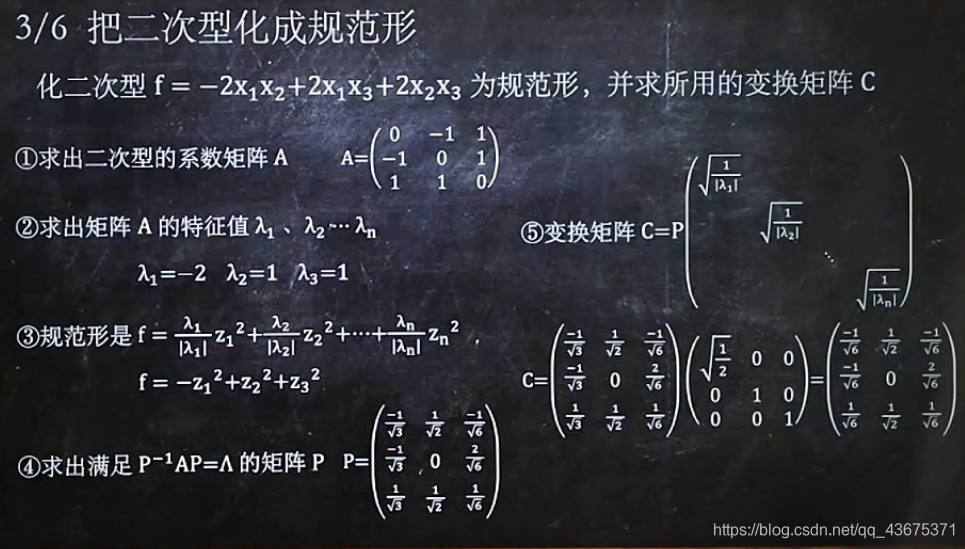 3/6 把二次型化成规范形
化二次型 f = −2x₁x₂+2x₁x₃+2x₂x₃ 为规范形，并求所用的变换矩阵 C
①求出二次型的系数矩阵 A A=
0 −1 1
−1 0 1
1 1 0
②求出矩阵 A 的特征值 λ₁ 、λ₂⋯ λₙ
λ₁=−2 λ₂=1 λ₃=1
③规范形是 f = λ₁/|λ₁| z₁²+λ₂/|λ₂| z₂²+⋯+λₙ/|λₙ| zₙ²
f = −z₁²+z₂²+z₃²
④求出满足 P⁻¹AP=Λ 的矩阵 P P=
−1/√3 1/√2 −1/√6
−1/√3 0 2/√6
1/√3 1/√2 1/√6
⑤变换矩阵 C=P
√(1/|λ₁|)
√(1/|λ₂|)
⋱
√(1/|λₙ|)
C=
−1/√3 1/√2 −1/√6
−1/√3 0 2/√6
1/√3 1/√2 1/√6
√(1/2) 0 0
0 1 0
0 0 1
=
−1/√6 1/√2 −1/√6
−1/√6 0 2/√6
1/√6 1/√2 1/√6
https://blog.csdn.net/qq_43675371